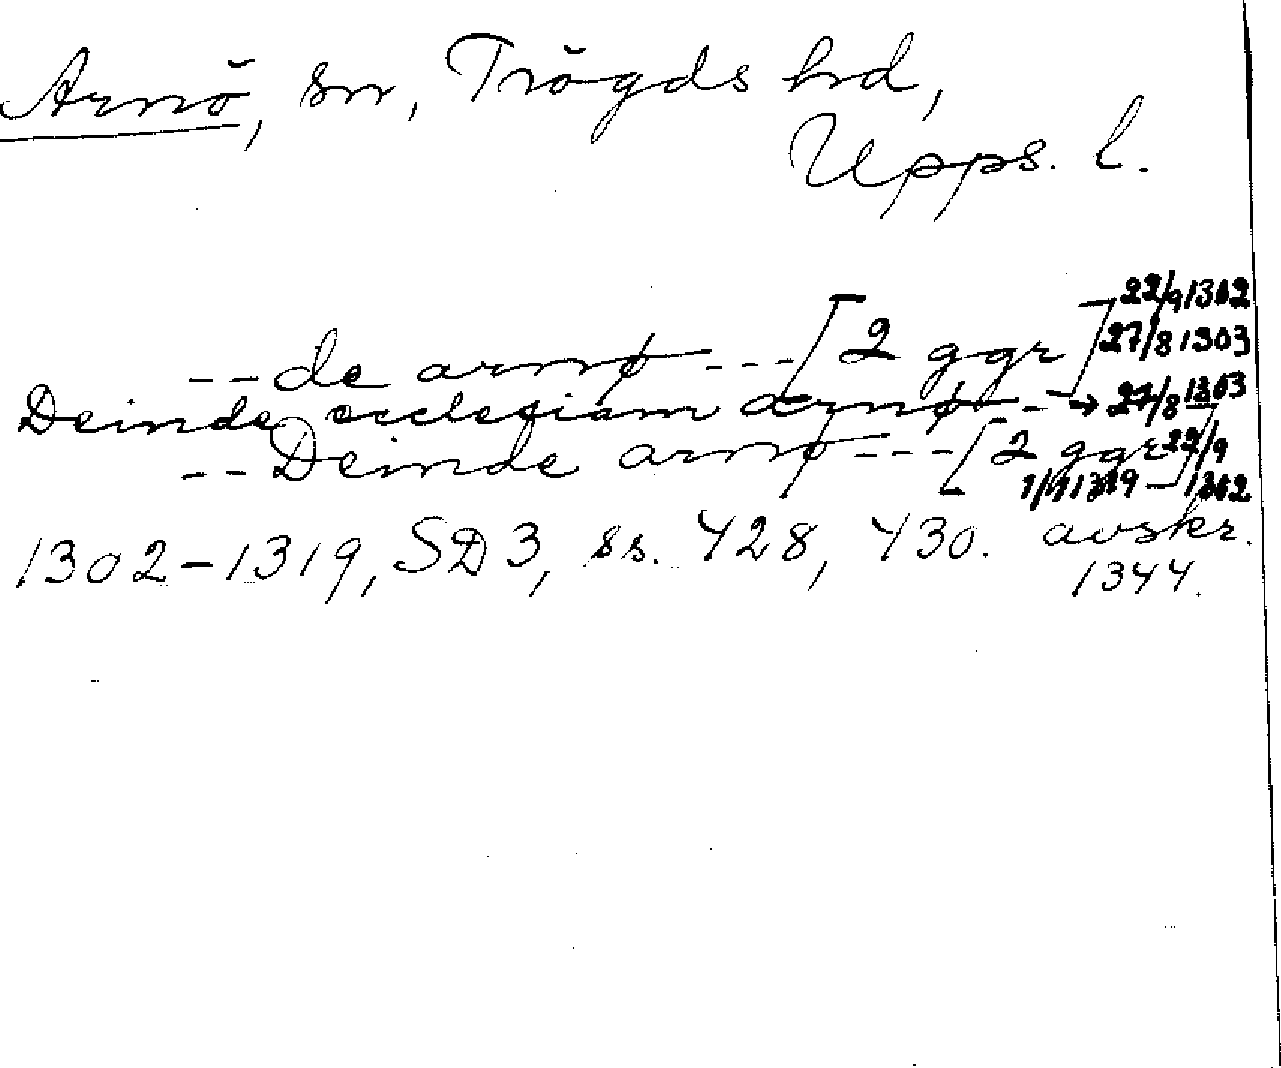 Arnö, sn, Trögds hd,
Upps. l.
22/9 1302
--de arnø---[2 ggr] 27/8 1303
Deinde ecclesiam arnø--→ 27/8 1303
--Deinde arnø---[2 ggr 22/9
1302]
1302-1319, SD3, ss. 428, 430. avskr.
1344.